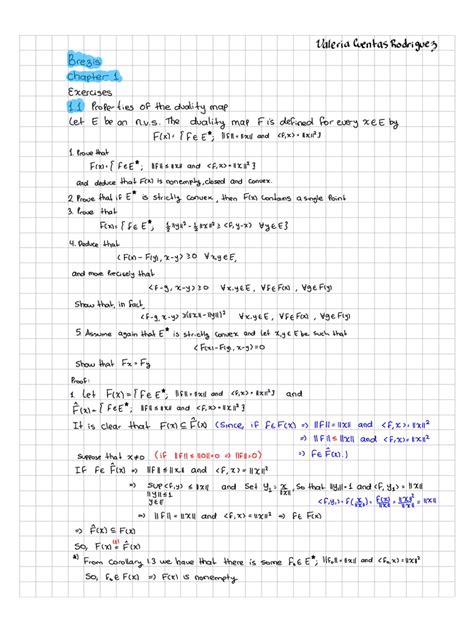 Valeria Cuentas Rodriguez
Brezis
Chapter 1
Exercises
1.1 Properties of the duality map
Let E be an n.v.s. The duality map F is defined for every x∈E by
F(x) = { f∈E*; ||f|| = ||x|| and <f,x> = ||x||² }
1. Prove that
F(x) = { f∈E*; ||f|| ≤ ||x|| and <f,x> = ||x||² }
and deduce that F(x) is nonempty, closed and convex.
2. Prove that if E* is strictly convex, then F(x) contains a single point
3. Prove that
F(x) = { f∈E*; ½||y||² - ½||x||² ≥ <f,y-x> ∀y∈E }
4. Deduce that
<F(x) - F(y), x-y> ≥ 0 ∀x,y∈E,
and more precisely that
<f-g, x-y> ≥ 0 ∀x,y∈E, ∀f∈F(x), ∀g∈F(y)
Show that, in fact,
<f-g, x-y> ≥ (||x|| - ||y||)² ∀x,y∈E, ∀f∈F(x), ∀g∈F(y)
5. Assume again that E* is strictly convex and let x,y∈E be such that
<F(x) - F(y), x-y> = 0
Show that Fx = Fy
Proof:
1. Let F(x) = { f∈E*; ||f|| = ||x|| and <f,x> = ||x||² } and
F̂(x) = { f∈E*; ||f|| ≤ ||x|| and <f,x> = ||x||² }
It is clear that F(x) ⊆ F̂(x) (Since, if f∈F(x) ⇒ ||f|| = ||x|| and <f,x> = ||x||²
⇒ ||f|| ≤ ||x|| and <f,x> = ||x||²
Suppose that x≠0 (if ||f|| ≤ ||0|| = 0 ⇒ ||f|| = 0) ⇒ f∈F̂(x).)
If f∈F̂(x) ⇒ ||f|| ≤ ||x|| and <f,x> = ||x||²
⇒ sup <f,y> ≤ ||x|| and Set y₁ = x/||x||, so that ||y₁|| = 1 and <f,y₁> = ||x||
||y|| ≤ 1
y∈E <f,y₁> = f(x/||x||) = f(x)/||x|| = ||x||²/||x|| = ||x||
⇒ ||f|| = ||x|| and <f,x> = ||x||² ⇒ f∈F(x)
⇒ F̂(x) ⊆ F(x)
So, F(x) = F̂(x)
*) From corollary 1.3 we have that there is some fₓ∈E*; ||fₓ|| = ||x|| and <fₓ,x> = ||x||²
So, fₓ∈F(x) ⇒ F(x) is nonempty